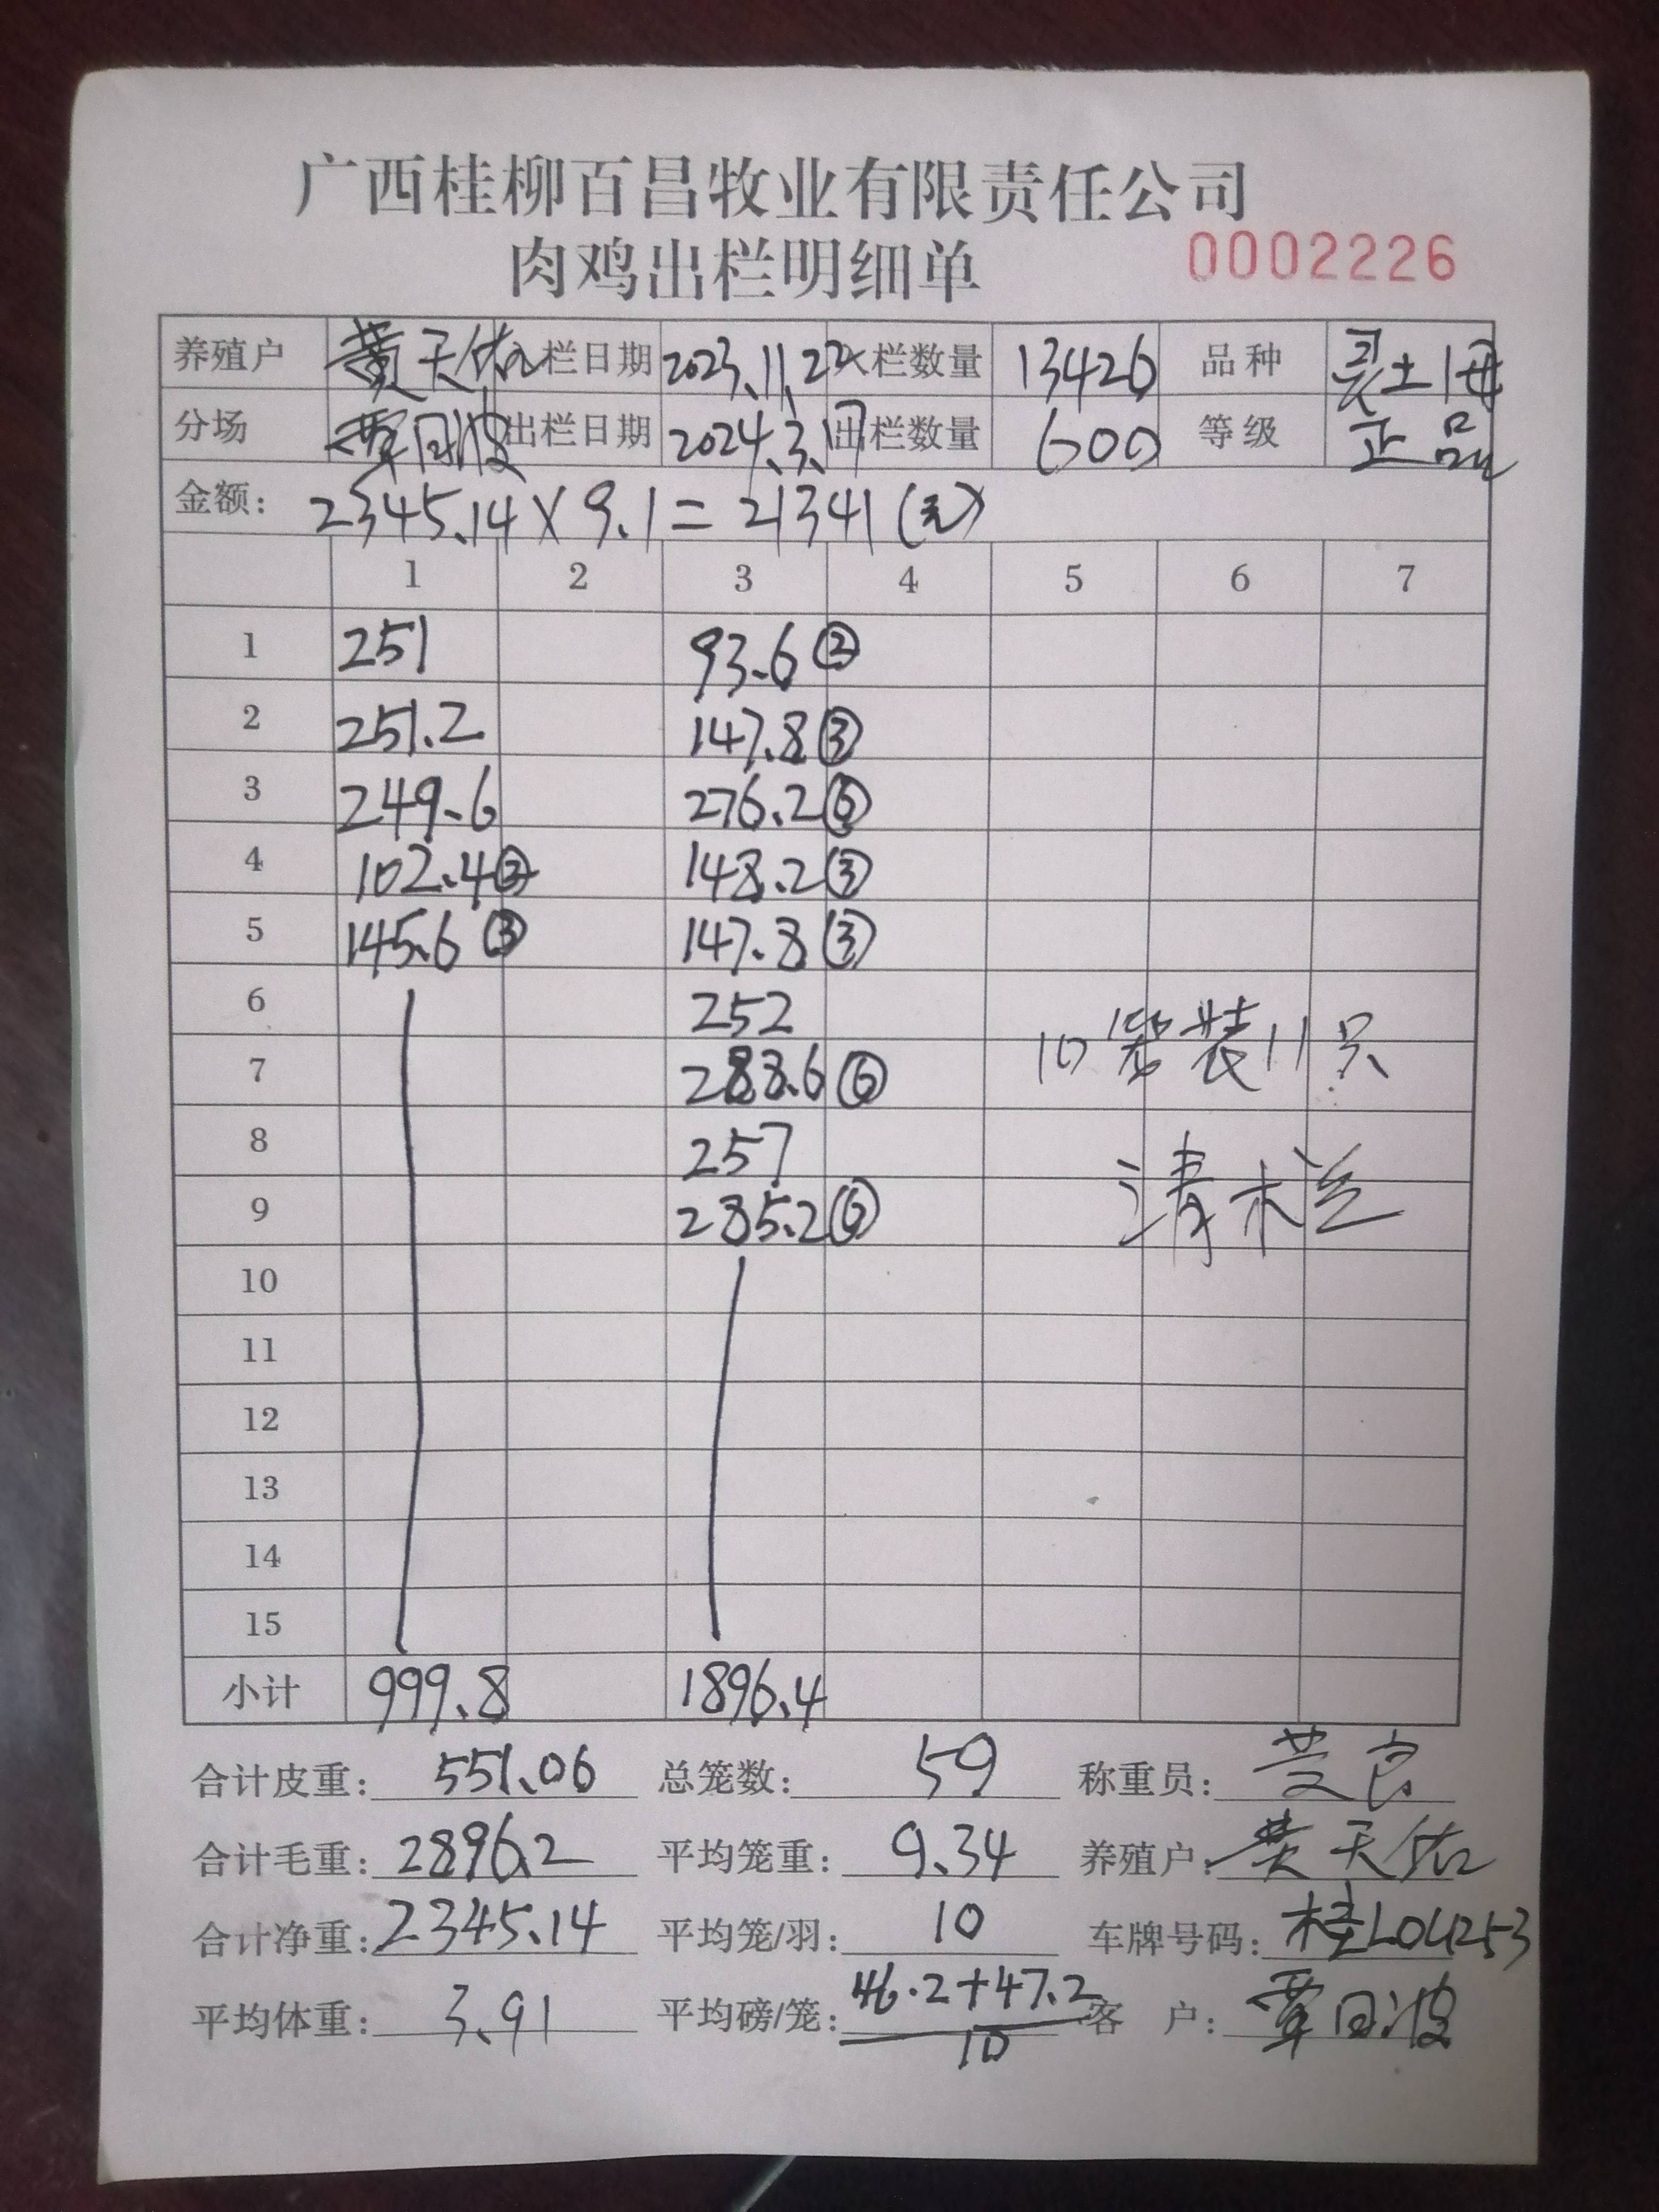 广西桂柳百昌牧业有限责任公司
肉鸡出栏明细单 0002226
养殖户 黄天佑 入栏日期 2023.11.22 入栏数量 13426 品种 灵土1母
分场 覃日波 出栏日期 2024.3.17 出栏数量 600 等级 正品
金额: 2345.14×9.1=21341(元)
1 2 3 4 5 6 7
1 251 93.6②
2 251.2 147.8③
3 249.6 276.2⑥
4 102.4② 148.2③
5 145.6③ 147.8③
6 252
10 装11只
7 288.6⑥
8 257
清栏
9 285.2⑥
10
11
12
13
14
15
小计 999.8 1896.4
合计皮重: 551.06 总笼数: 59 称重员:
合计毛重: 2896.2 平均笼重: 9.34 养殖户: 黄天佑
合计净重: 2345.14 平均笼/羽: 10 车牌号码: 桂L04253
平均体重: 3.91 平均磅/笼: 46.2+47.2 客户: 覃日波
10